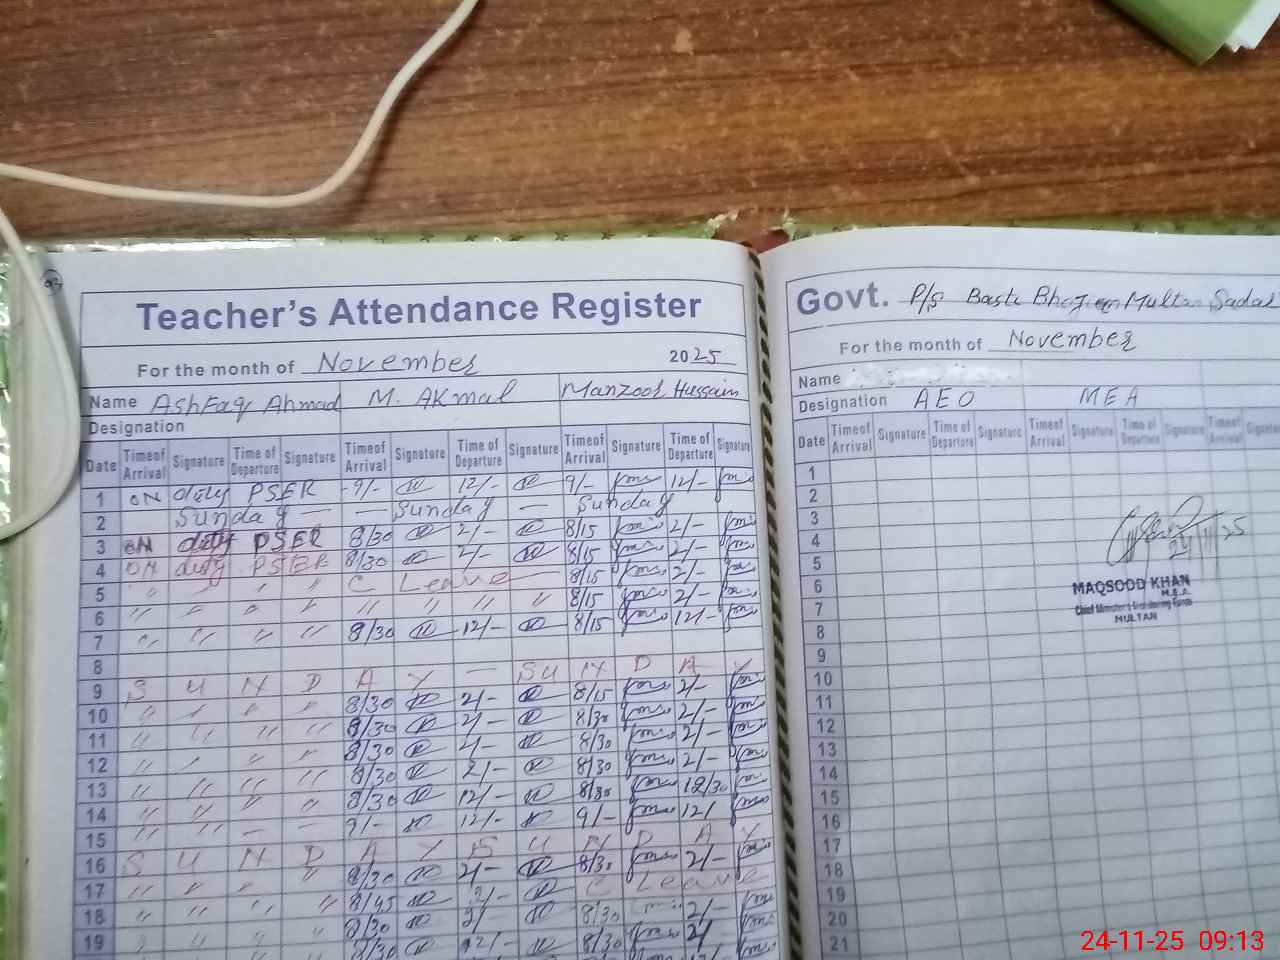 Teacher's Attendance Register
For the month of November 2025
Name Ashfaq Ahmad M. Akmal Manzoor Hussain
Designation
Date Time of Arrival Signature Time of Departure Signature Time of Arrival Signature Time of Departure Signature Time of Arrival Signature Time of Departure Signature
1 ON duty PSER 9/- 12/- 9/- 12/-
2 Sunday — — Sunday — Sunday
3 ON duty PSER 8/30 2/- 8/15 2/-
4 ON duty PSER 8/30 2/- 8/15 2/-
5 " " " " C Leave 8/15 2/-
6 " " " " " " " " 8/15 2/-
7 " " " " 8/30 12/- 8/15 12/-
8
9 S U N D A Y — S U N D A Y
10 " " " " 8/30 2/- 8/15 2/-
11 " " " " 8/30 2/- 8/30 2/-
12 " " " " 8/30 2/- 8/30 2/-
13 " " " " 8/30 2/- 8/30 2/-
14 " " " " 8/30 12/- 8/30 12/30
15 " " — — 9/- 12/- 9/- 12/
16 S U N D A Y S U N D A Y
17 " " " " 8/30 2/- 8/30 2/-
18 " " " " 8/45 2/- C Leave
19 " " " " 8/30 2/- 8/30 2/-
8/30 12/- 8/30 2/
Govt. P/s Basti Multan Sadar
For the month of November
Name
Designation AEO MEA
Date Time of Arrival Signature Time of Departure Signature Time of Arrival Signature Time of Departure Signature Time of Arrival
1
2
3
4
5
6
7
8
9
10
11
12
13
14
15
16
17
18
19
20
21
24/11/25
MAQSOOD KHAN
M.E.A.
Chief Minister's Monitoring Force
MULTAN
24-11-25 09:13